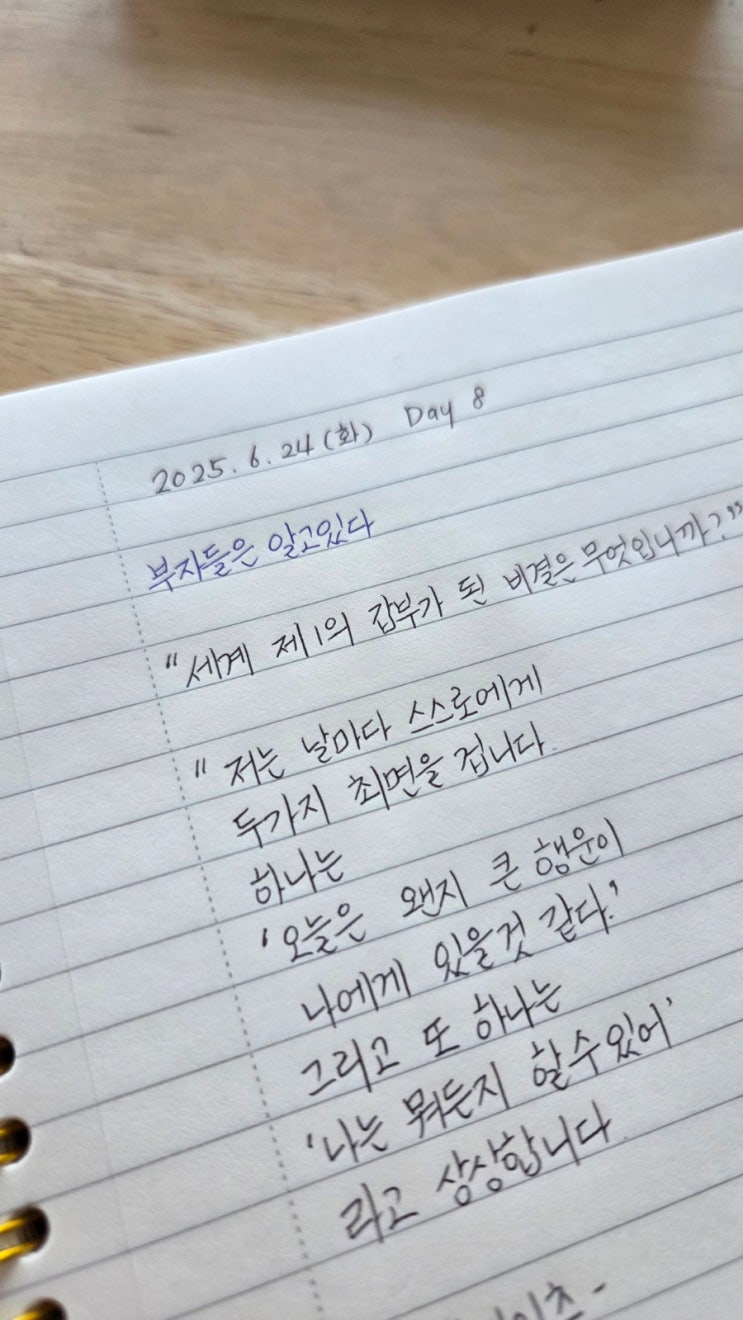 2025. 6. 24 (화) Day 8
부자들은 알고있다
“세계 제1의 갑부가 된 비결은 무엇입니까?”
“저는 날마다 스스로에게
두가지 최면을 겁니다.
하나는
‘오늘은 왠지 큰 행운이
나에게 있을것 같다.’
그리고 또 하나는
‘나는 뭐든지 할수있어’
라고 상상합니다